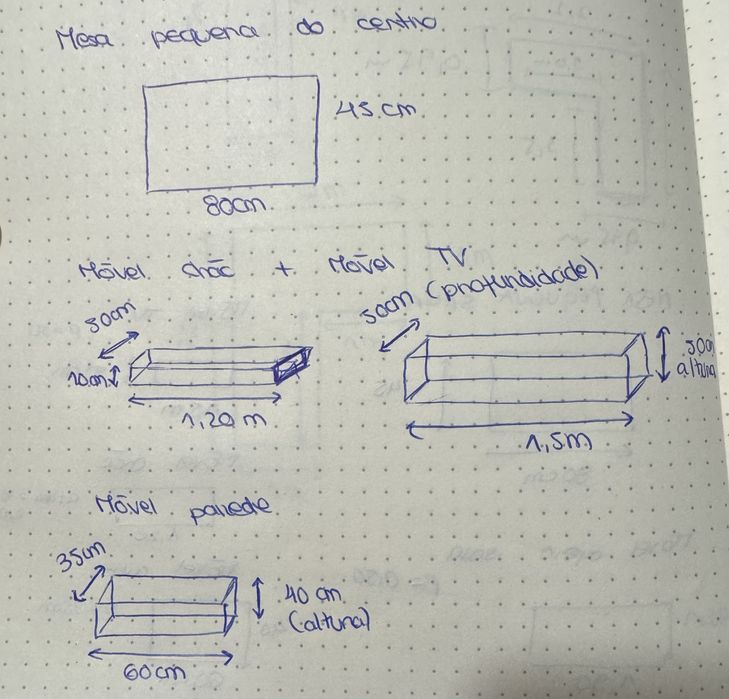 Mesa pequena do centro
45 cm.
80cm.
Móvel chão + Móvel TV
50cm
50cm (profundidade)
10cm
50cm
altura
1,20 m
1,5m
Móvel parede
35cm
40 cm
(altura)
60cm